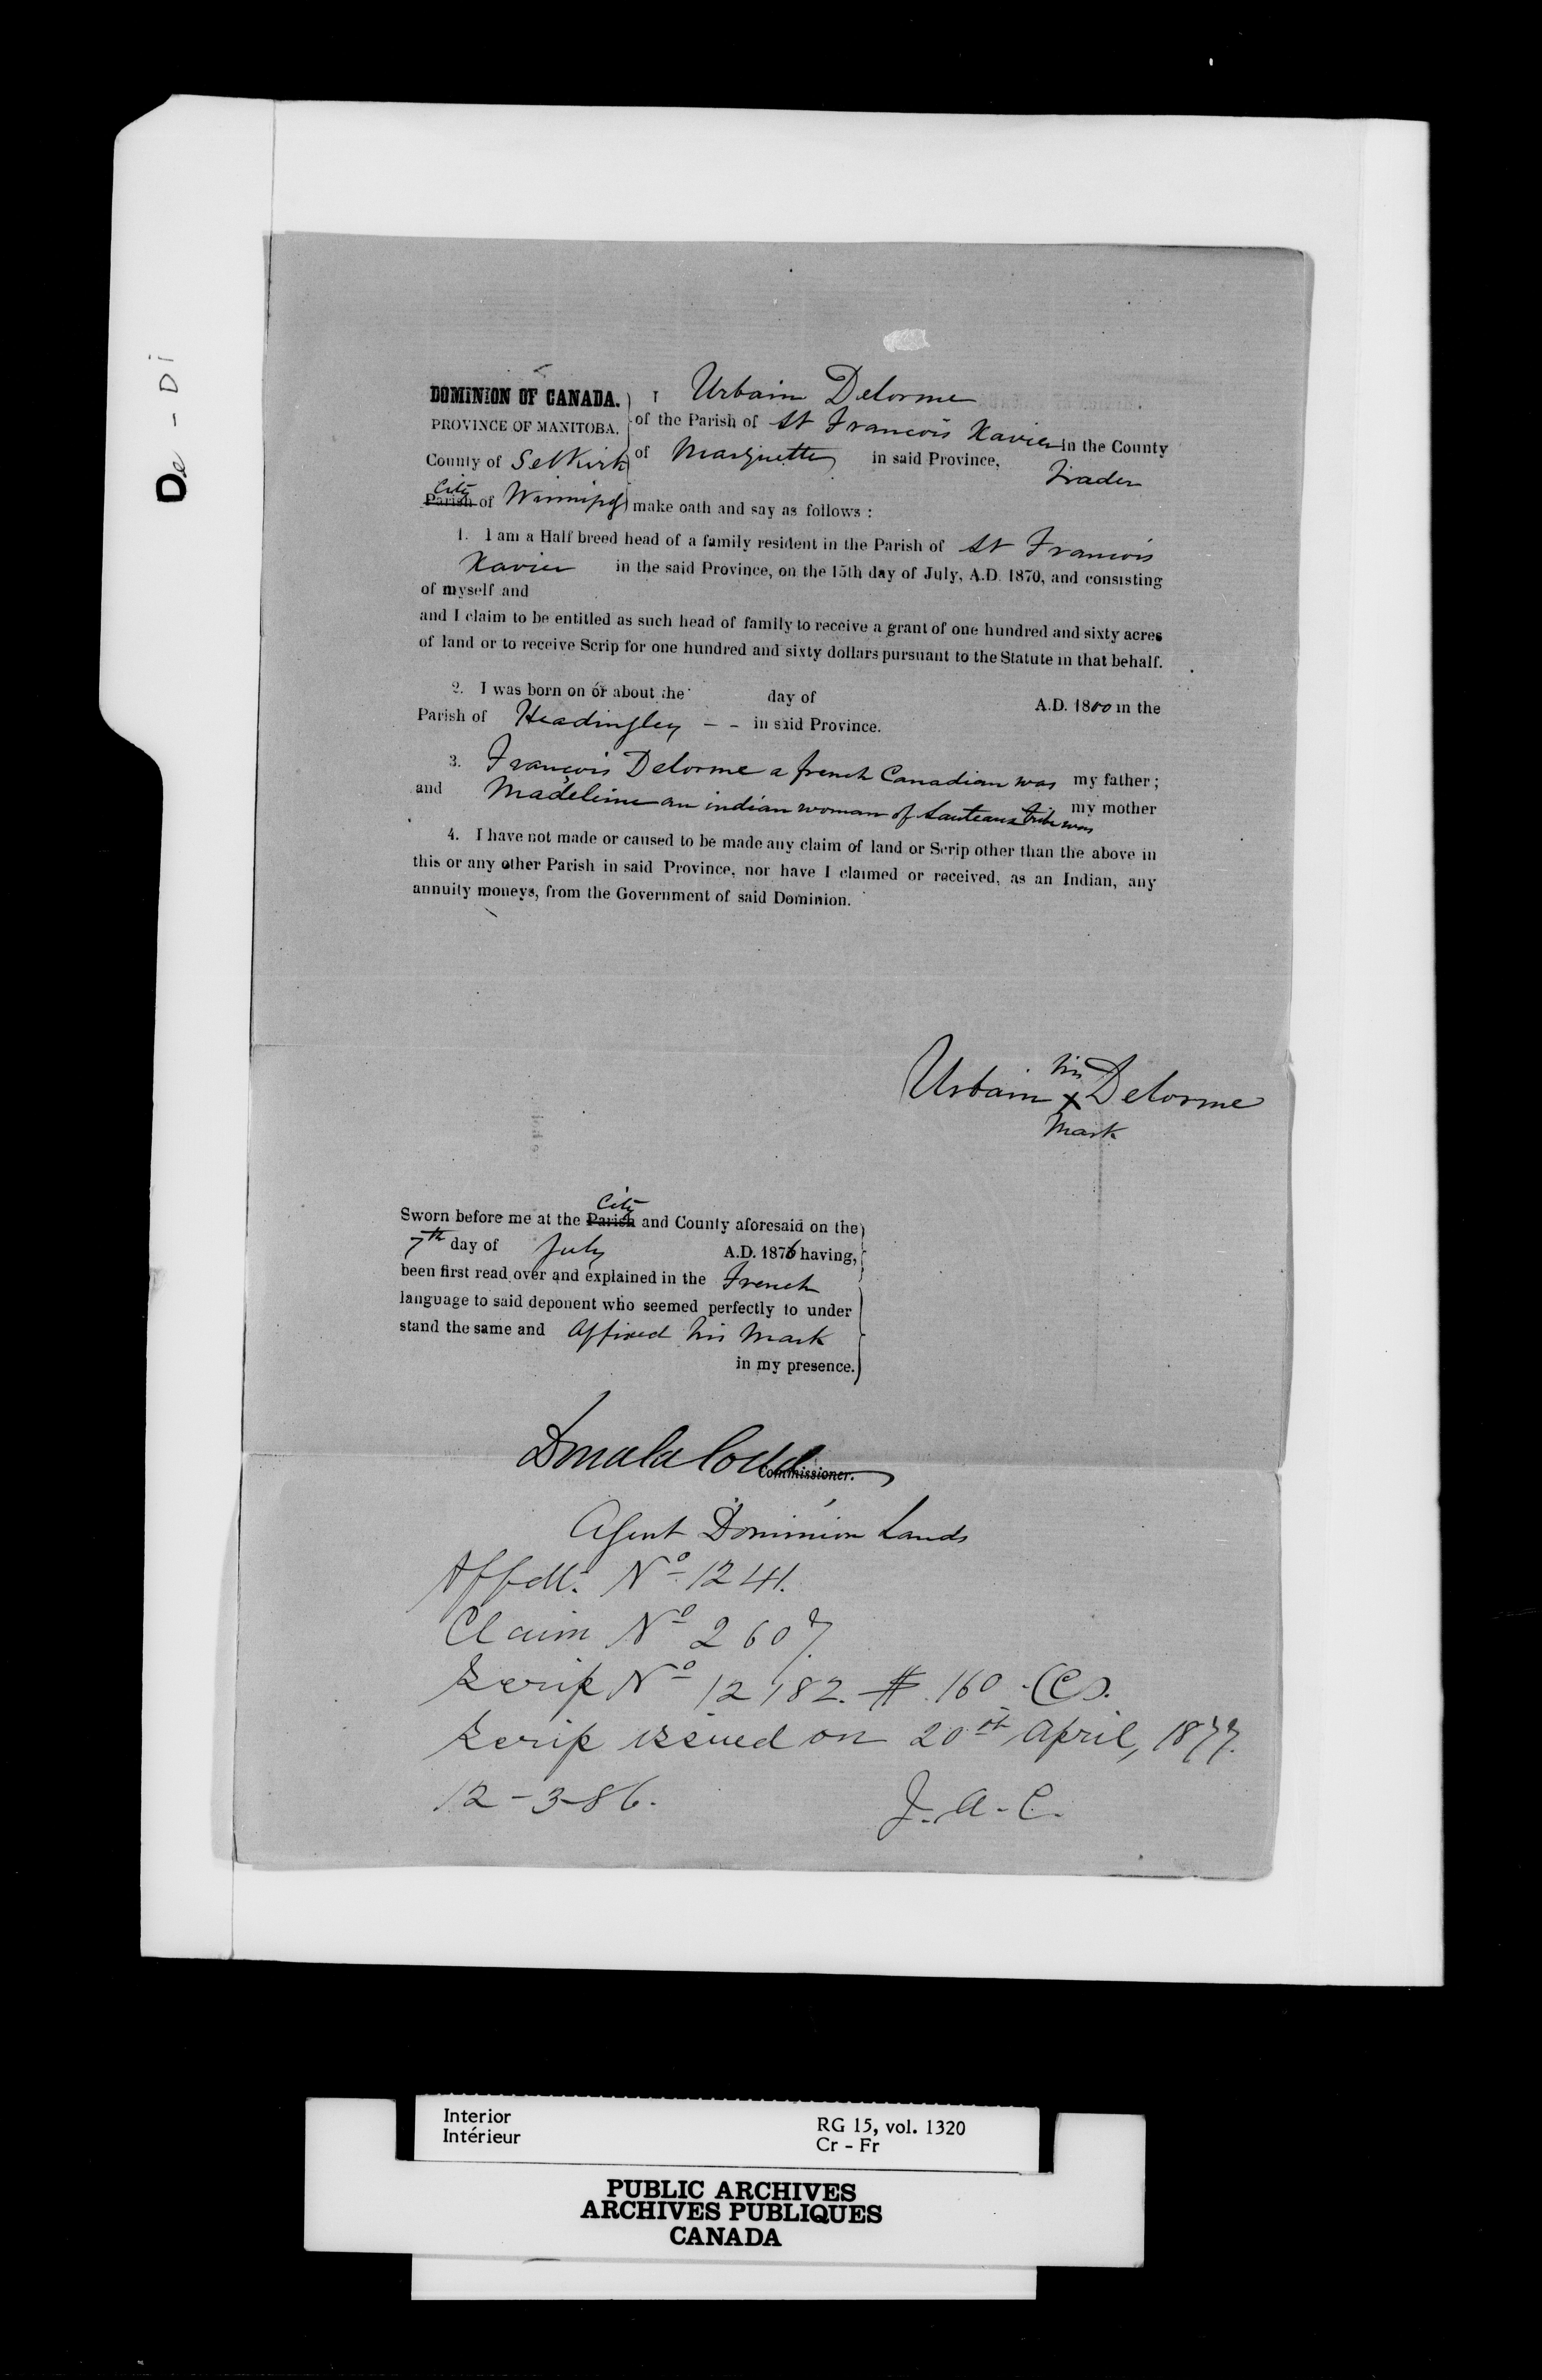 De - Di
DOMINION OF CANADA.
PROVINCE OF MANITOBA.
County of Selkirk
City
Parish of Winnipeg
I Urbain Delorme
of the Parish of St François Xavier in the County
of Marquette in said Province, Trader
make oath and say as follows :
1. I am a Half breed head of a family resident in the Parish of St François
Xavier in the said Province, on the 15th day of July, A.D. 1870, and consisting
of myself and
and I claim to be entitled as such head of family to receive a grant of one hundred and sixty acres
of land or to receive Scrip for one hundred and sixty dollars pursuant to the Statute in that behalf.
2. I was born on or about the day of A.D. 1800 in the
Parish of Headingley - - in said Province.
3. François Delorme a french Canadian was my father ;
and Madeleine an indian woman of Sauteaux tribe was my mother
4. I have not made or caused to be made any claim of land or Scrip other than the above in
this or any other Parish in said Province, nor have I claimed or received, as an Indian, any
annuity moneys, from the Government of said Dominion.
his
Urbain X Delorme
Mark
City
Sworn before me at the Parish and County aforesaid on the
7th day of July A.D. 1876 having,
been first read over and explained in the French
language to said deponent who seemed perfectly to under
stand the same and affixed his mark
in my presence.
Donald Codd
Commissioner.
Agent Dominion Lands
Affdt. No 1241.
Claim No 2607.
Scrip No 12182. $ 160.
Scrip issued on 20th April, 1877.
12-3-86. J.A.C.
Interior
Intérieur
RG 15, vol. 1320
Cr - Fr
PUBLIC ARCHIVES
ARCHIVES PUBLIQUES
CANADA